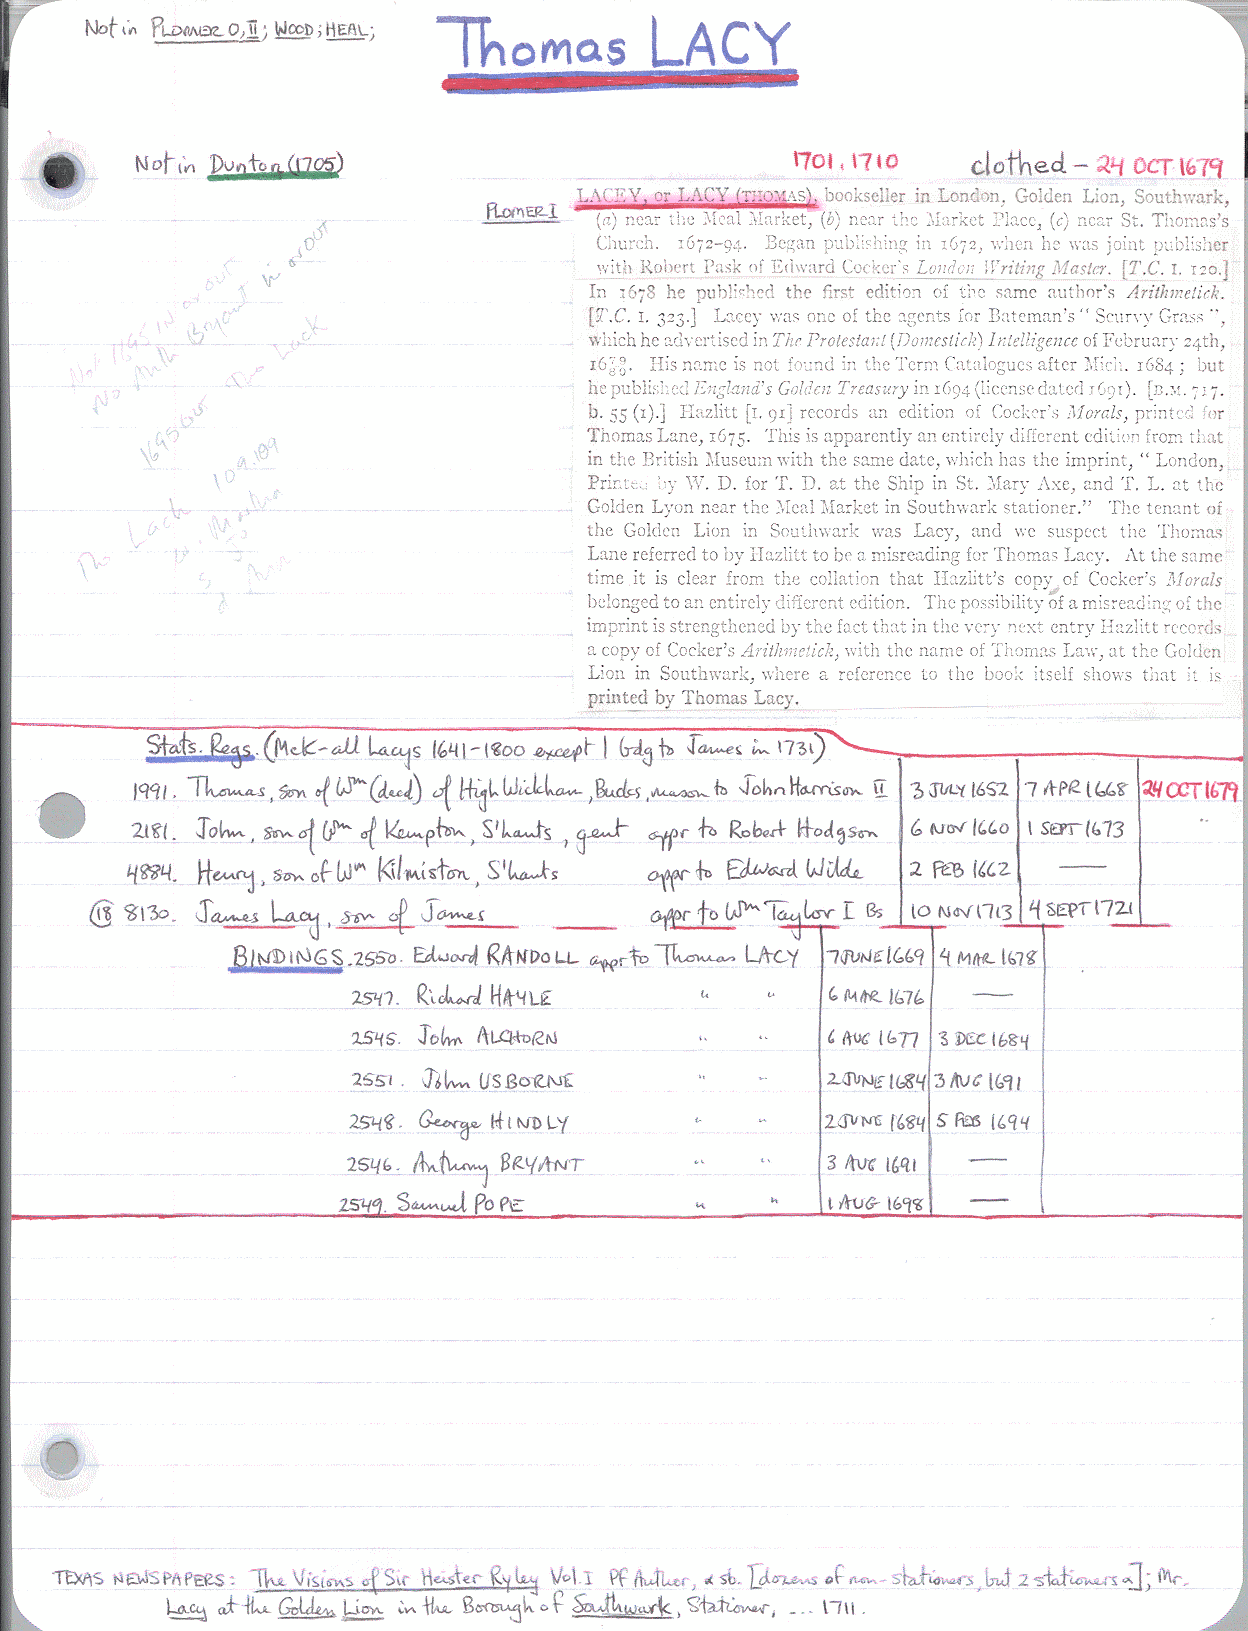 Not in PLOMER O, II; WOOD; HEAL;
Thomas LACY
Not in Dunton (1705)
1701, 1710
clothed - 24 OCT 1679
PLOMER I
LACEY, or LACY (THOMAS), bookseller in London, Golden Lion, Southwark,
(a) near the Meal Market, (b) near the Market Place, (c) near St. Thomas's
Church. 1672-94. Began publishing in 1672, when he was joint publisher
with Robert Pask of Edward Cocker's London Writing Master. [T.C. I. 120.]
In 1678 he published the first edition of the same author's Arithmetick.
[T.C. I. 323.] Lacey was one of the agents for Bateman's " Scurvy Grass ",
which he advertised in The Protestant (Domestick) Intelligence of February 24th,
His name is not found in the Term Catalogues after Mich. 1684 ; but
he published England's Golden Treasury in 1694 (license dated 1691). [B.M. 717.
b. 55 (1).] Hazlitt [I. 91] records an edition of Cocker's Morals, printed for
Thomas Lane, 1675. This is apparently an entirely different edition from that
in the British Museum with the same date, which has the imprint, " London,
Printed by W. D. for T. D. at the Ship in St. Mary Axe, and T. L. at the
Golden Lyon near the Meal Market in Southwark stationer." The tenant of
the Golden Lion in Southwark was Lacy, and we suspect the Thomas
Lane referred to by Hazlitt to be a misreading for Thomas Lacy. At the same
time it is clear from the collation that Hazlitt's copy of Cocker's Morals
belonged to an entirely different edition. The possibility of a misreading of the
imprint is strengthened by the fact that in the very next entry Hazlitt records
a copy of Cocker's Arithmetick, with the name of Thomas Law, at the Golden
Lion in Southwark, where a reference to the book itself shows that it is
printed by Thomas Lacy.
Not 1695 IN or OUT
No Anth Bryant in or OUT
1695 Out Tho Lack
Tho Lack 109.109
Stats. Regs. (McK - all Lacys 1641-1800 except 1 Gdg to James in 1731)
1991. Thomas, son of Wm (decd) of High Wickham, Bucks, mason to John Harrison II 3 JULY 1652 7 APR 1668 24 OCT 1679
2181. John, son of Wm of Kempton, S'hants, gent appr to Robert Hodgson 6 NOV 1660 1 SEPT 1673 "
4884. Henry, son of Wm Kilmiston, S'hants appr to Edward Wilde 2 FEB 1662 —
(18) 8130. James Lacy, son of James appr to Wm Taylor I Bs 10 NOV 1713 4 SEPT 1721
BINDINGS. 2550. Edward RANDOLL appr to Thomas LACY 7 JUNE 1669 4 MAR 1678
2547. Richard HAYLE " " 6 MAR 1676 —
2545. John ALCHORN " " 6 AUG 1677 3 DEC 1684
2551. John USBORNE " " 2 JUNE 1684 3 AUG 1691
2548. George HINDLY " " 2 JUNE 1684 5 FEB 1694
2546. Anthony BRYANT " " 3 AUG 1691 —
2549. Samuel POPE " " 1 AUG 1698 —
TEXAS NEWSPAPERS: The Visions of Sir Heister Ryley Vol. I Pf Auther, & sb. [dozens of non-stationers, but 2 stationers a]; Mr.
Lacy at the Golden Lion in the Borough of Southwark, Stationer, ... 1711.